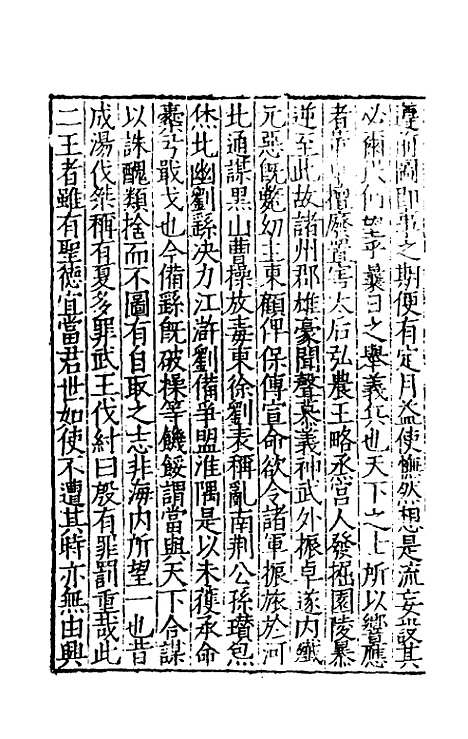 虔前圖即事之期便有定月益使憮然想是流妄設其
必爾民何望乎曩日之舉義兵也天下之士所以響應
者董卓擅廢置害太后弘農王略烝宮人發掘園陵暴
逆至此故諸州郡雄豪聞聲慕義神武外振卓遂内殲
元惡旣斃幼主東顧俾保傅宣命欲令諸軍振旅於河
北通謀黑山曹操放毒東徐劉表稱亂南荆公孫瓚炰
烋北幽劉繇決力江滸劉備爭盟淮隅是以未獲承命
櫜弓戢戈也今備繇旣破操等饑餒謂當與天下合謀
以誅醜類捨而不圖有自取之志非海内所望一也昔
成湯伐桀稱有夏多罪武王伐紂曰殷有罪罰重哉此
二王者雖有聖德宜當君世如使不遭其時亦無由興